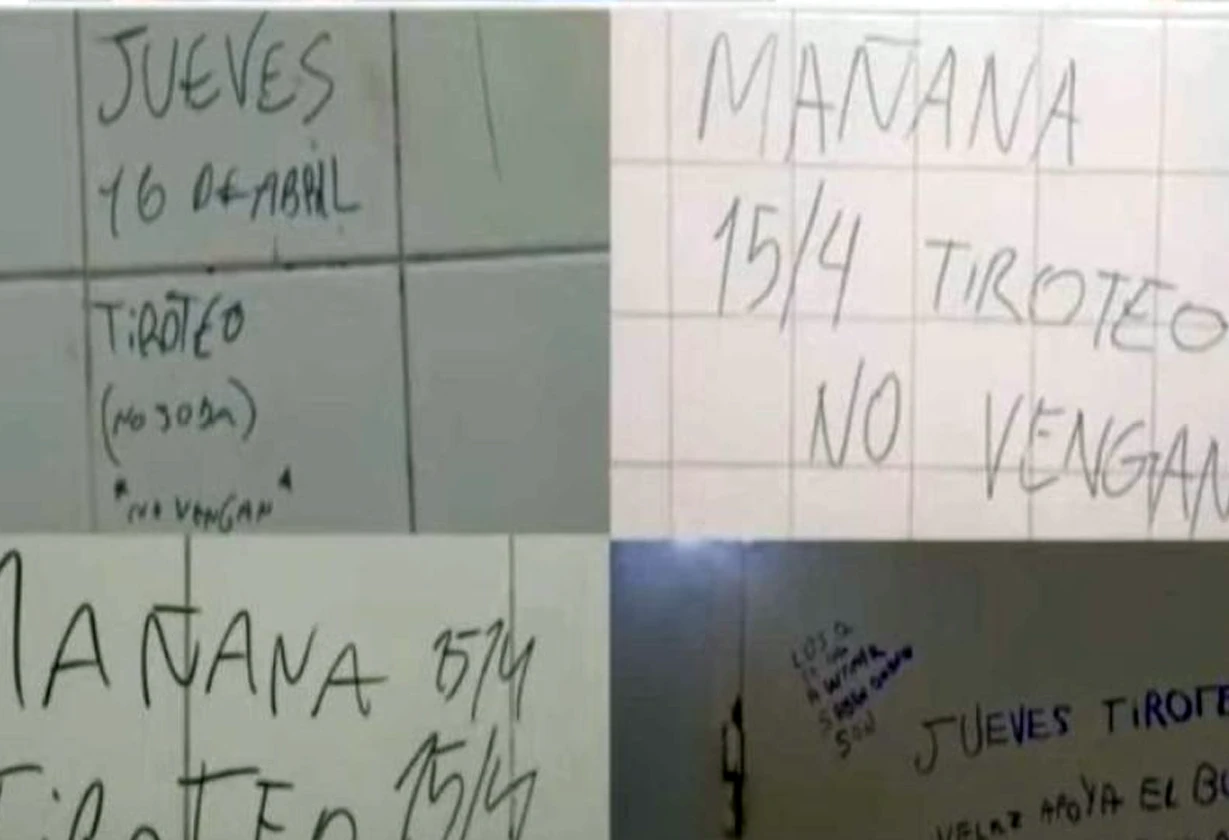 JUEVES
16 DE ABRIL
TIROTEO
(NO JODA)
"NO VENGAN"
MAÑANA
15/4 TIROTEO
NO VENGAN
MAÑANA 15/4
TIROTEO 15/4
LOS Q
A
SON
JUEVES TIROTE
APOYA EL BU